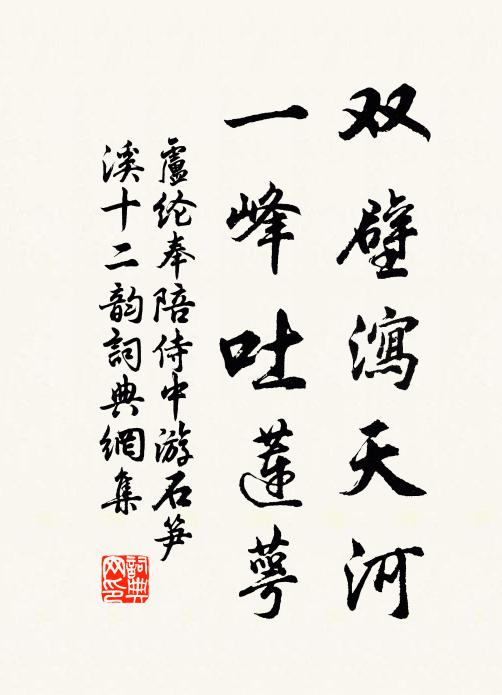 双壁瀉天河
一峰吐蓮萼
盧纶奉陪侍中游石笋
溪十二韵詞典網集
詞典
网印